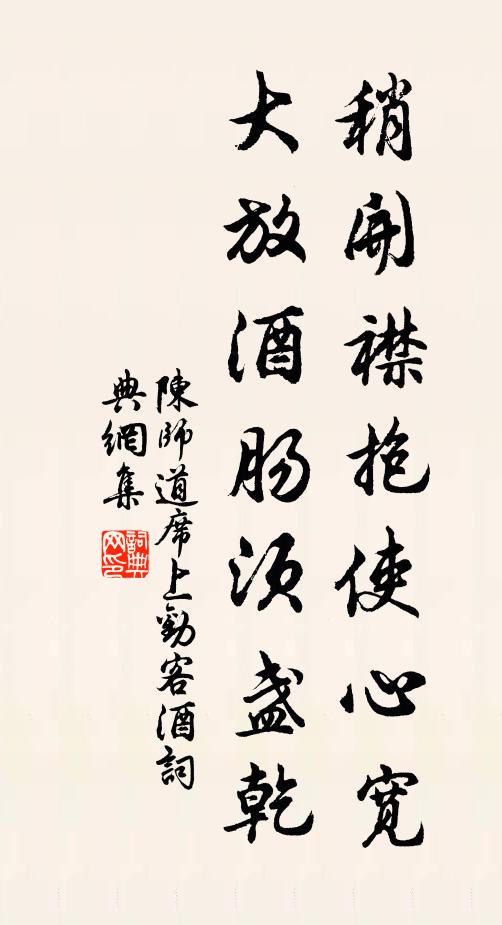 稍開襟抱使心寬
大放酒腸須盞乾
陳師道席上勸客酒詞
典網集
詞典
网印